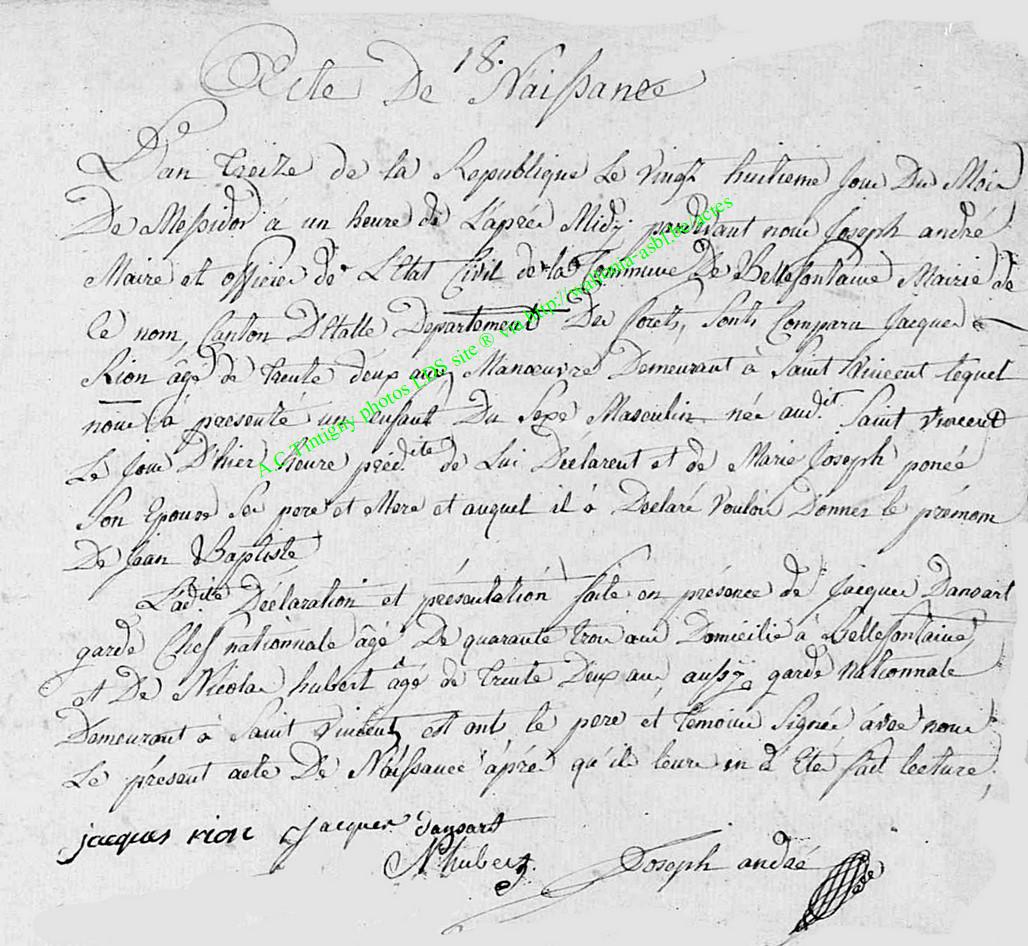 18.
Acte De Naissance
L'an treize de la Republique Le vingt huitieme Jour Du Mois
De Messidor à un heure de L'aprés Midy pardevant nous Joseph andré
Maire et officier de L'Etat Civil de la Commune De Bellefontaine Mairie de
ce nom, Canton D'Etalle Departement Des forets, sont Comparu Jacques
Rion âgé de trente deux ans Manœuvre Demeurant à Saint Vincent lequel
nous à presenté un enfant Du Sexe Masculin née audit Saint Vincent
Le Jour D'hier heure prédite de Lui Déclarent et de Marie Joseph poncé
Son Epouse Ses pere et Mere et auquel il à Déclaré vouloir Donner le prémom
De Jean Baptiste
Ladite Déclaration et présentation faite en présence de Jacques Dansart
garde Chef nationnale âgé De quarante trois ans Domicilié à Bellefontaine,
et De Nicolas hubert âgé de trente Deux ans, aussy garde nationnale
Demeurant à Saint Vincent, est ont le pere et témoins signée avec nous
Le présent acte De Naissance aprés qu'il leurs en à Eté fait lecture.
jacques rion Jacques dansart
N hubert Joseph andré
A.C. Tintigny photos LDS site ® via http://
asbl.be/actes